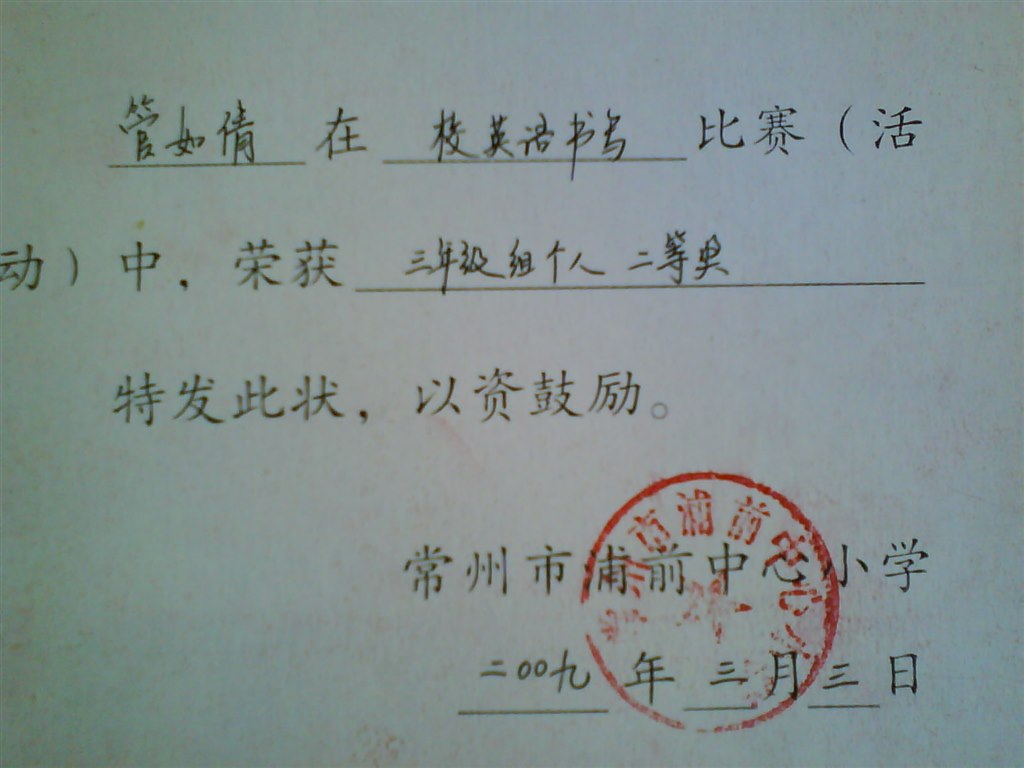 管如倩 在 校英语书写 比赛（活
动）中，荣获 三年级组个人 二等奖
特发此状，以资鼓励。
市浦前中心
常州市浦前中心小学
二00九 年 三 月 三 日